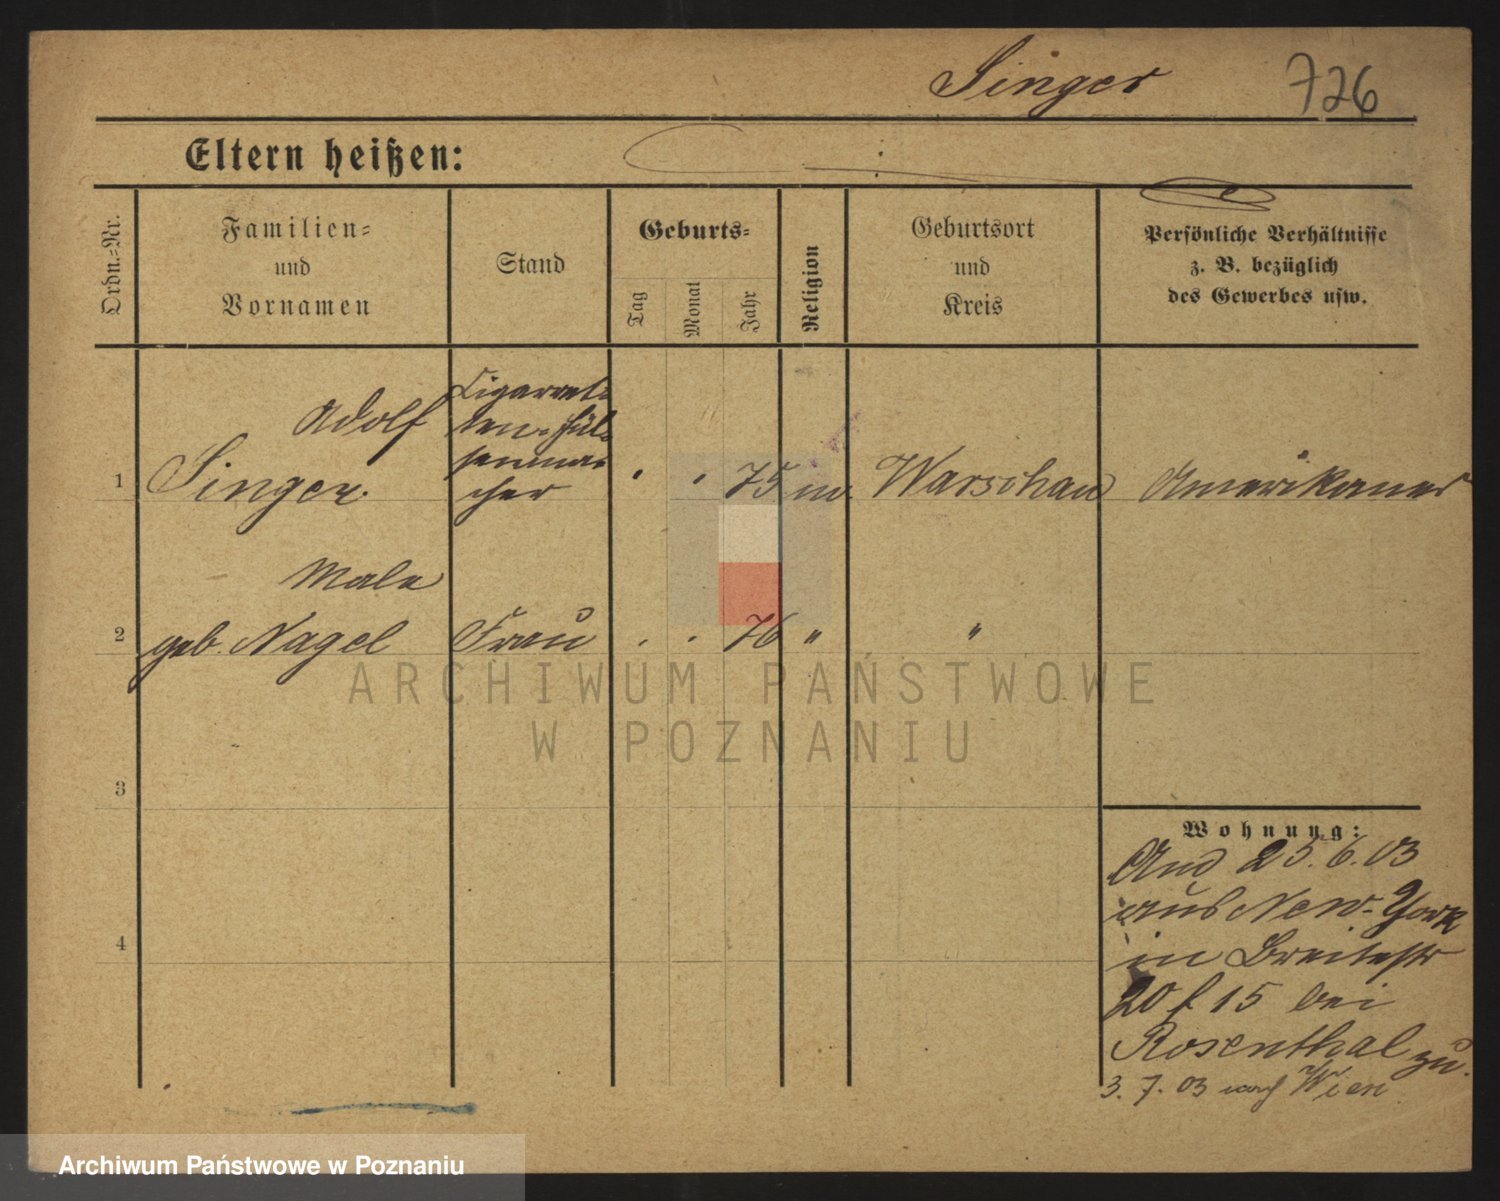 Singer 726
Eltern heißen:
Ordn.=Nr.
Familien=
und
Vornamen
Stand
Geburts=
Tag
Monat
Jahr
Religion
Geburtsort
und
Kreis
Persönliche Verhältnisse
z. B. bezüglich
des Gewerbes usw.
Adolf
1 Singer.
Cigaret=
ten=Hül=
senma=
cher
. . 75 m. Warschau Amerikaner
Male
2 geb. Nagel Frau . . 76 " "
3
4
Wohnung:
And 25. 6. 03
aus New-York
in Breitestr
20 f 15 bei
Rosenthal zu.
3. 7. 03 nach Wien.
ARCHIWUM PAŃSTWOWE
W POZNANIU
Archiwum Państwowe w Poznaniu